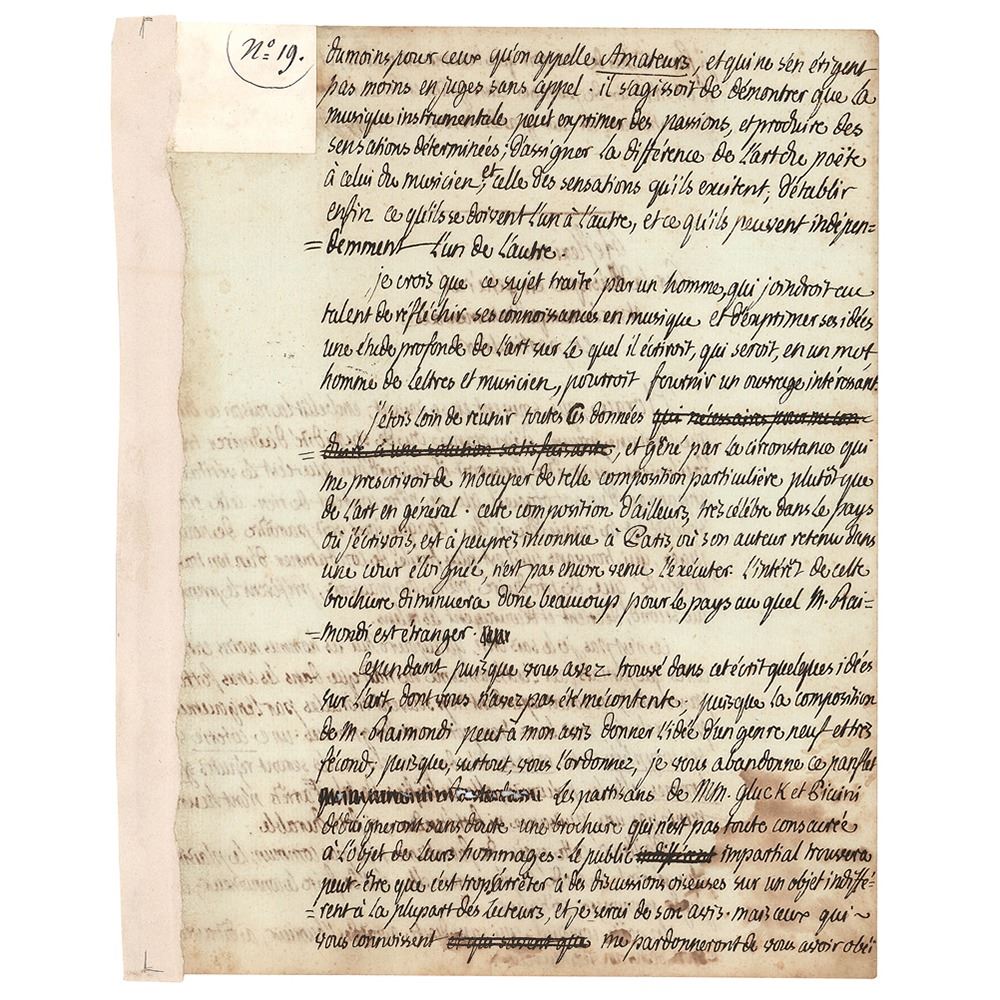 N.º 19.
du moins pour ceux qu'on appelle Amateurs, et qui ne s'en érigent
pas moins en juges sans appel. il s'agissoit de démontrer que la
musique instrumentale peut exprimer des passions, et produire des
sensations déterminées; d'assigner la différence de l'art du poëte
à celui du musicien, et celle des sensations qu'ils excitent; d'établir
enfin ce qu'ils se doivent l'un à l'autre, et ce qu'ils peuvent indépen=
=demment l'un de l'autre.
je crois que ce sujet traité par un homme, qui joindroit au
talent de réfléchir ses connoissances en musique et d'exprimer ses idées
une étude profonde de l'art sur le quel il écriroit, qui seroit, en un mot,
homme de Lettres et musicien, pourroit fournir un ouvrage intéressant.
j'étois loin de réunir toutes ces données qui nécessaires pour me con=
=duire à une solution satisfaisante, et gêné par la circonstance qui
me prescrivoit de m'occuper de telle composition particulière plutôt que
de l'art en général. cette composition d'ailleurs, très célèbre dans le pays
où j'écrivois, est à peu près inconnue à Paris, où son auteur retenu dans
une cour éloignée, n'est pas encore venu l'exécuter. L'intérêt de cette
brochure diminuera donc beaucoup pour le pays au quel M. Rai=
=mondi est étranger.
Cependant puisque vous avez trouvé dans cet écrit quelques idées
sur l'art, dont vous n'avez pas été mécontente, puisque la composition
de M. Raimondi peut à mon avis donner l'idée d'un genre neuf et très
fécond; puisque, surtout, vous l'ordonnez, je vous abandonne ce panflet
Les partisans de MM. Gluck et Picini
dédaigneront sans doute une brochure qui n'est pas toute consacrée
à l'objet de leurs hommages. Le public indifférent impartial trouvera
peut-être que c'est trop s'arrêter à des discussions oiseuses sur un objet indiffé=
=rent à la plupart des Lecteurs, et je serai de son avis. mais ceux qui~
vous connoissent et qui savent que me pardonneront de vous avoir obéi